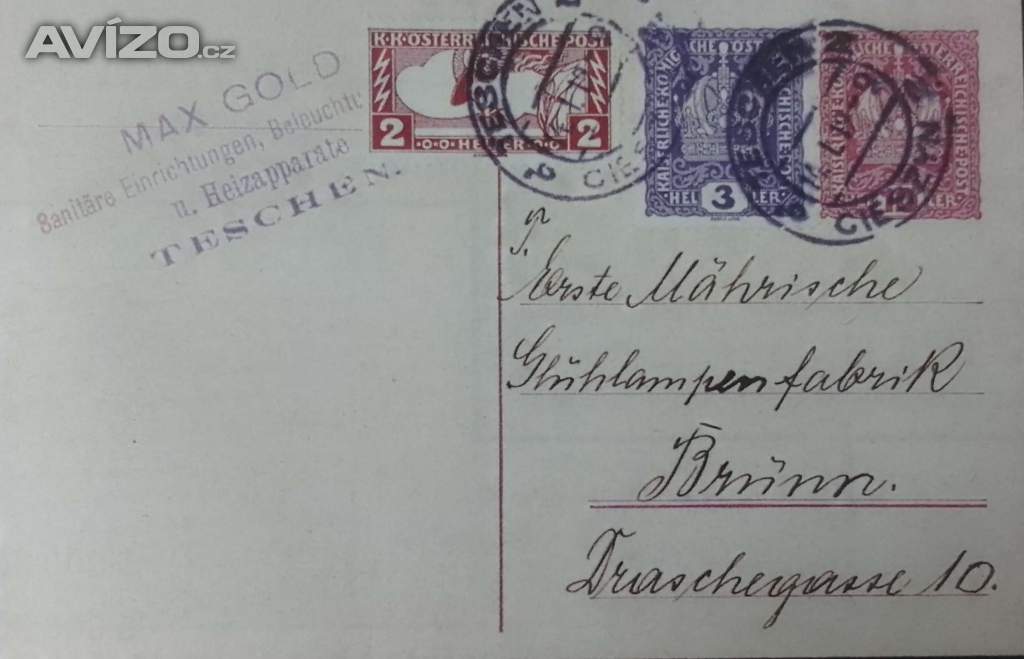 AVÍZO.cz
MAX GOLD
Sanitäre Einrichtungen, Beleucht
u. Heizapparate
TESCHEN.
K.K. ÖSTERREICHISCHE POST
2 HELLER 2
TESCHEN 2
CIESZYN
KAISERLICHE KÖNIGLICHE ÖSTERREICHISCHE POST
3
HELLER
TESCHEN
CIESZYN
T.
Erste Mährische
Glühlampenfabrik
Brünn.
Draschegasse 10.